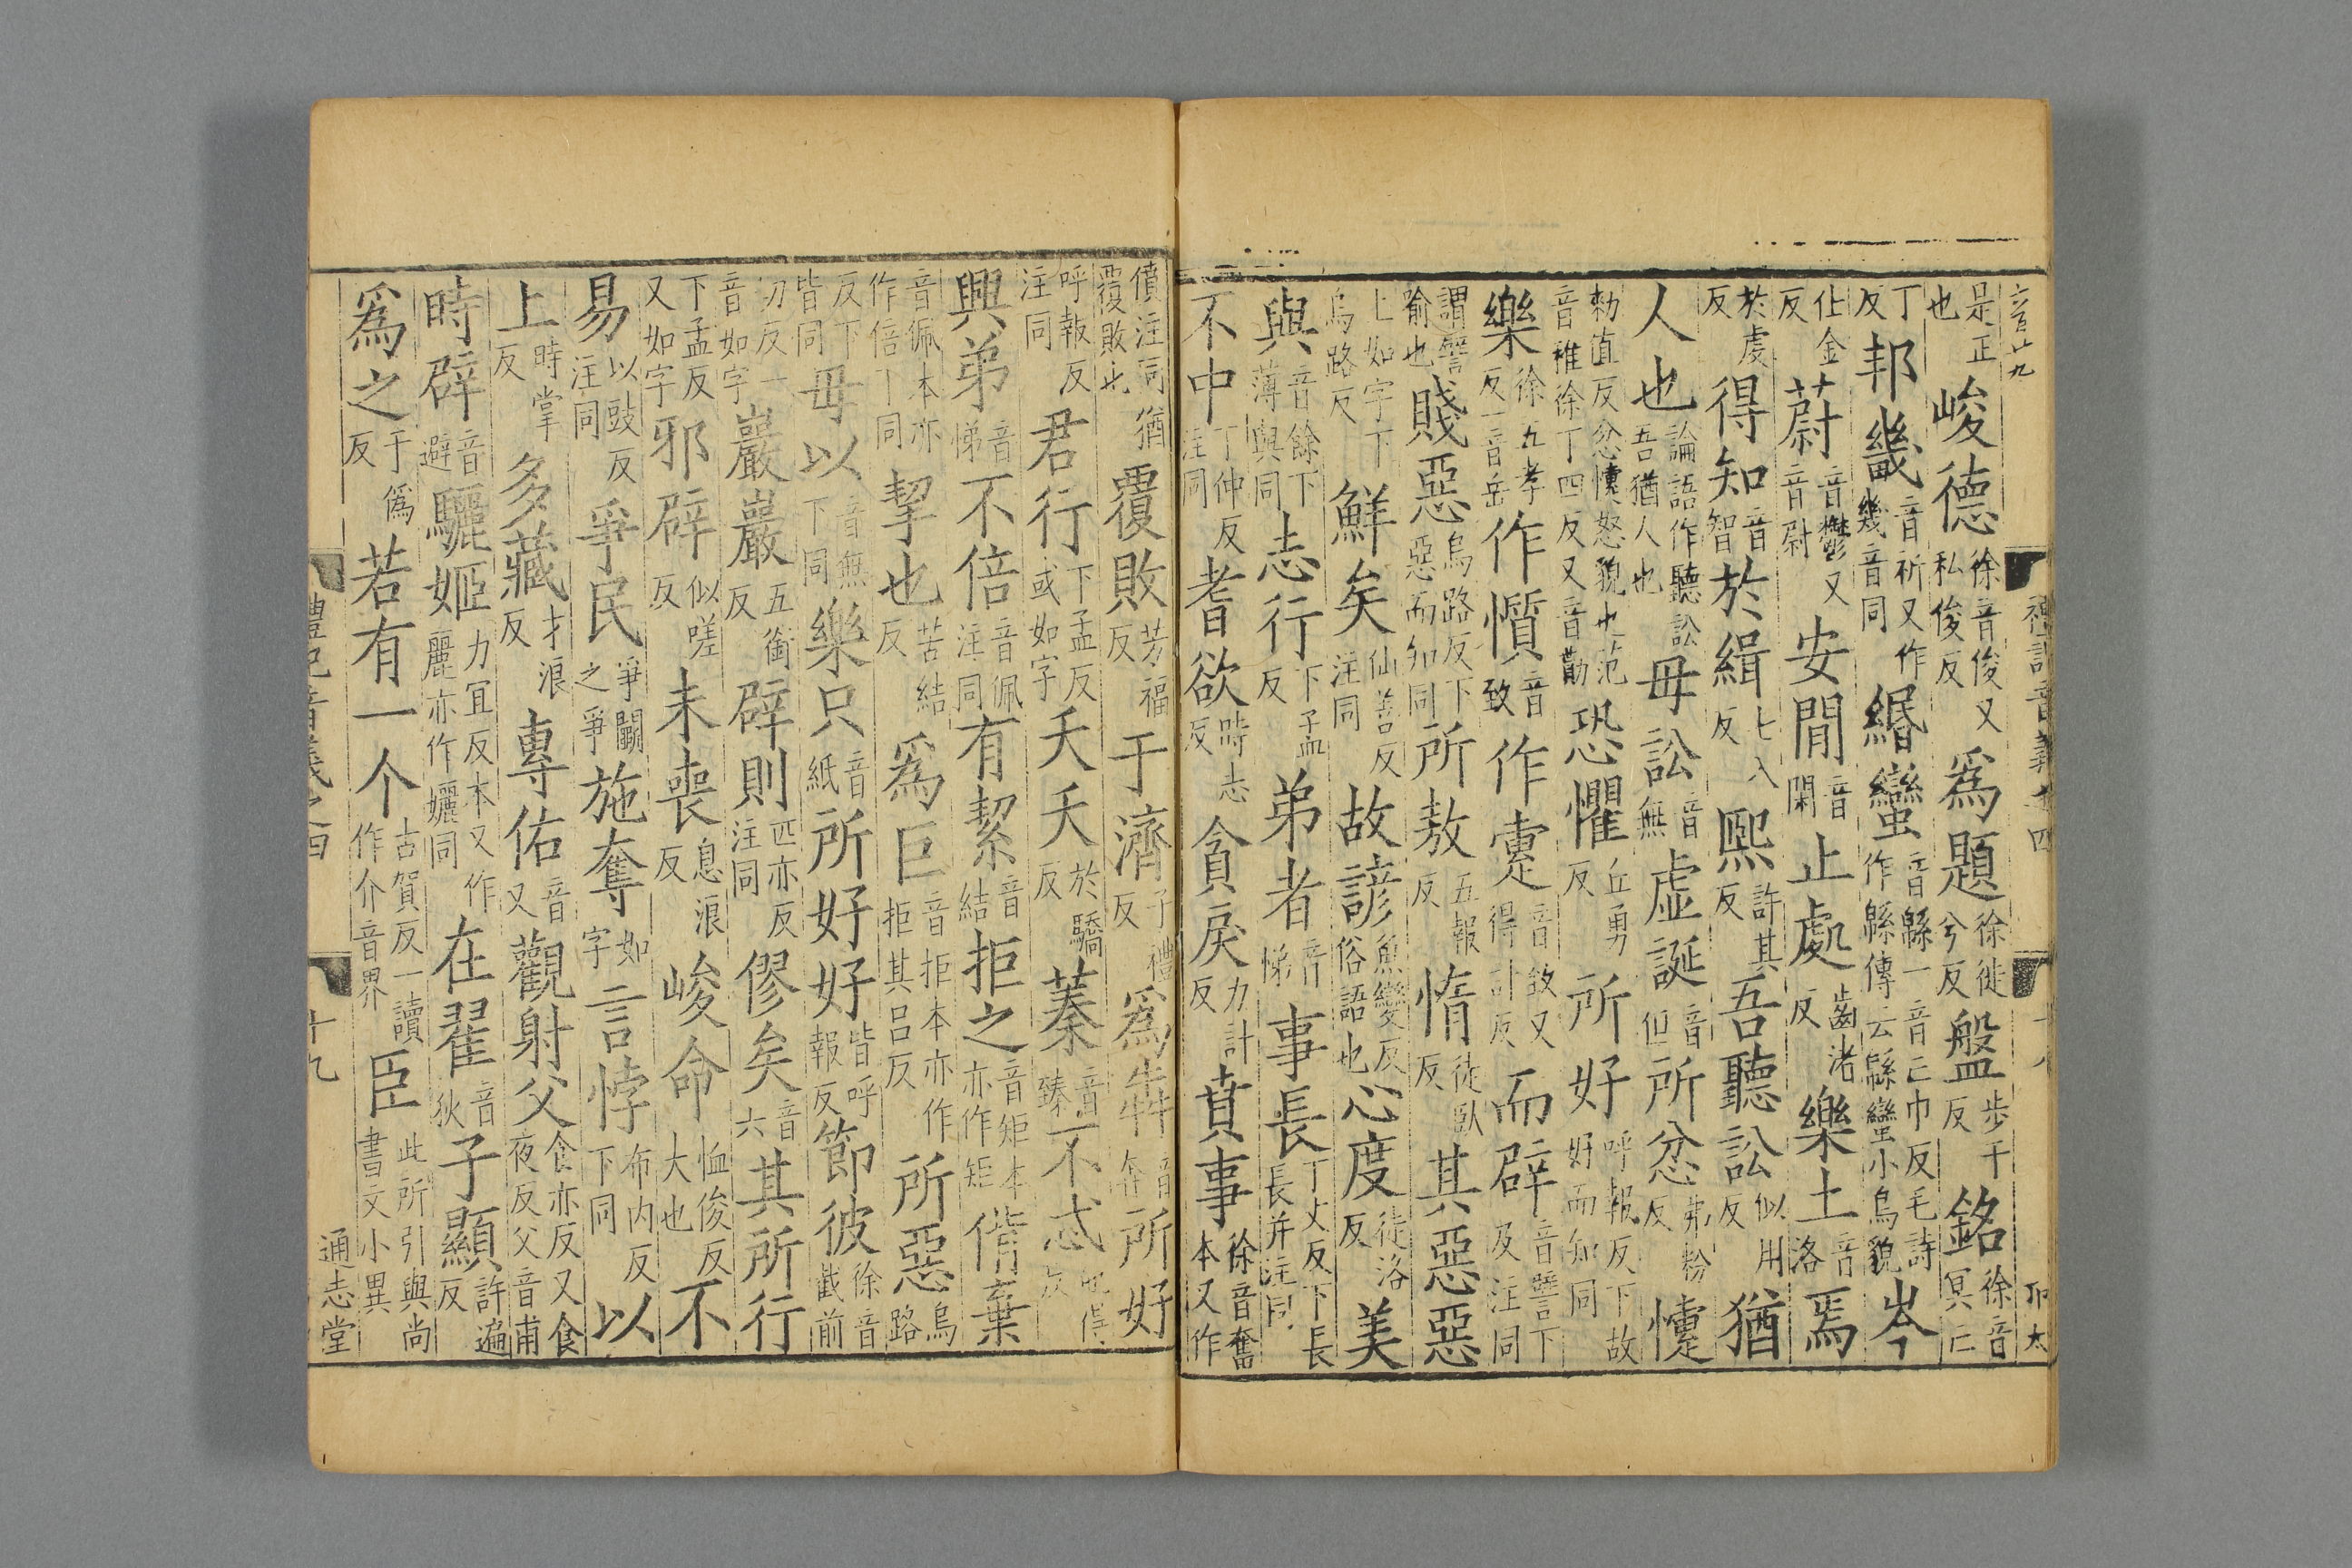 音廿九
禮記音義之四
十八
邛太
是正也峻德徐音俊又私俊反爲題徐徙兮反盤步干反銘徐音冥亡
丁反邦畿音祈又作幾音同緡蠻音緜一音亡巾反毛詩作緜傳云緜蠻小鳥貌岑
仕金反蔚音鬱又音尉安閒音閑止處齒渚反樂土音洛焉
於虔反得知音智於緝七入反熙許其反吾聽訟似用反猶
人也論語作聽訟吾猶人也毋訟音無虛誕音但所忿弗粉反懥
勑值反忿懥怒貌也范音稚徐丁四反又音勚恐懼丘勇反所好呼報反下故好而知同
樂徐五孝反一音岳作懫音致作疐音致又得計反而辟音譬下及注同
謂譬喻也賤惡烏路反下惡而知同所敖五報反惰徒臥反其惡惡
上如字下烏路反鮮矣仙善反注同故諺魚變反俗語也心度徒洛反美
與音餘下薄與同志行下孟反弟者音悌事長丁丈反下長長并注同
不中丁仲反注同耆欲時志反貪戾力計反賁事徐音奮本又作
僨注同猶覆敗也覆敗芳福反于濟子禮反爲犇音奔所好
呼報反注同君行下孟反或如字夭夭於驕反蓁音臻不忒他得反
興弟音悌不倍音佩注同有絜音結拒之音矩本亦作矩偝棄
音佩本亦作倍下同挈也苦結反爲巨音拒本亦作拒其呂反所惡烏路
反下皆同毋以音無下同樂只音紙所好好皆呼報反節彼徐音截前
切反一音如字巖巖五銜反辟則匹亦反注同僇矣音六其所行
下孟反又如字邪辟似嗟反未喪息浪反峻命恤俊反大也不
易以豉反注同爭民爭鬭之爭施奪如字言悖布內反下同以
上時掌反多藏才浪反專佑音又觀射父食亦反又食夜反父音甫
時辟音避驪姬力宜反本又作麗亦作孋同在翟音狄子顯許遍反
爲之于僞反若有一个古賀反一讀作介音界臣此所引與尚書文小異
禮記音義之四
十九
通志堂